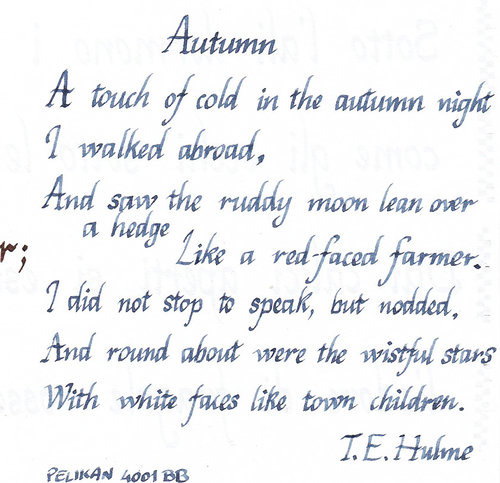 Autumn
A touch of cold in the autumn night
I walked abroad,
And saw the ruddy moon lean over
a hedge
r;
Like a red-faced farmer.
I did not stop to speak, but nodded,
And round about were the wistful stars
With white faces like town children.
T.E. Hulme
PELIKAN 4001 BB